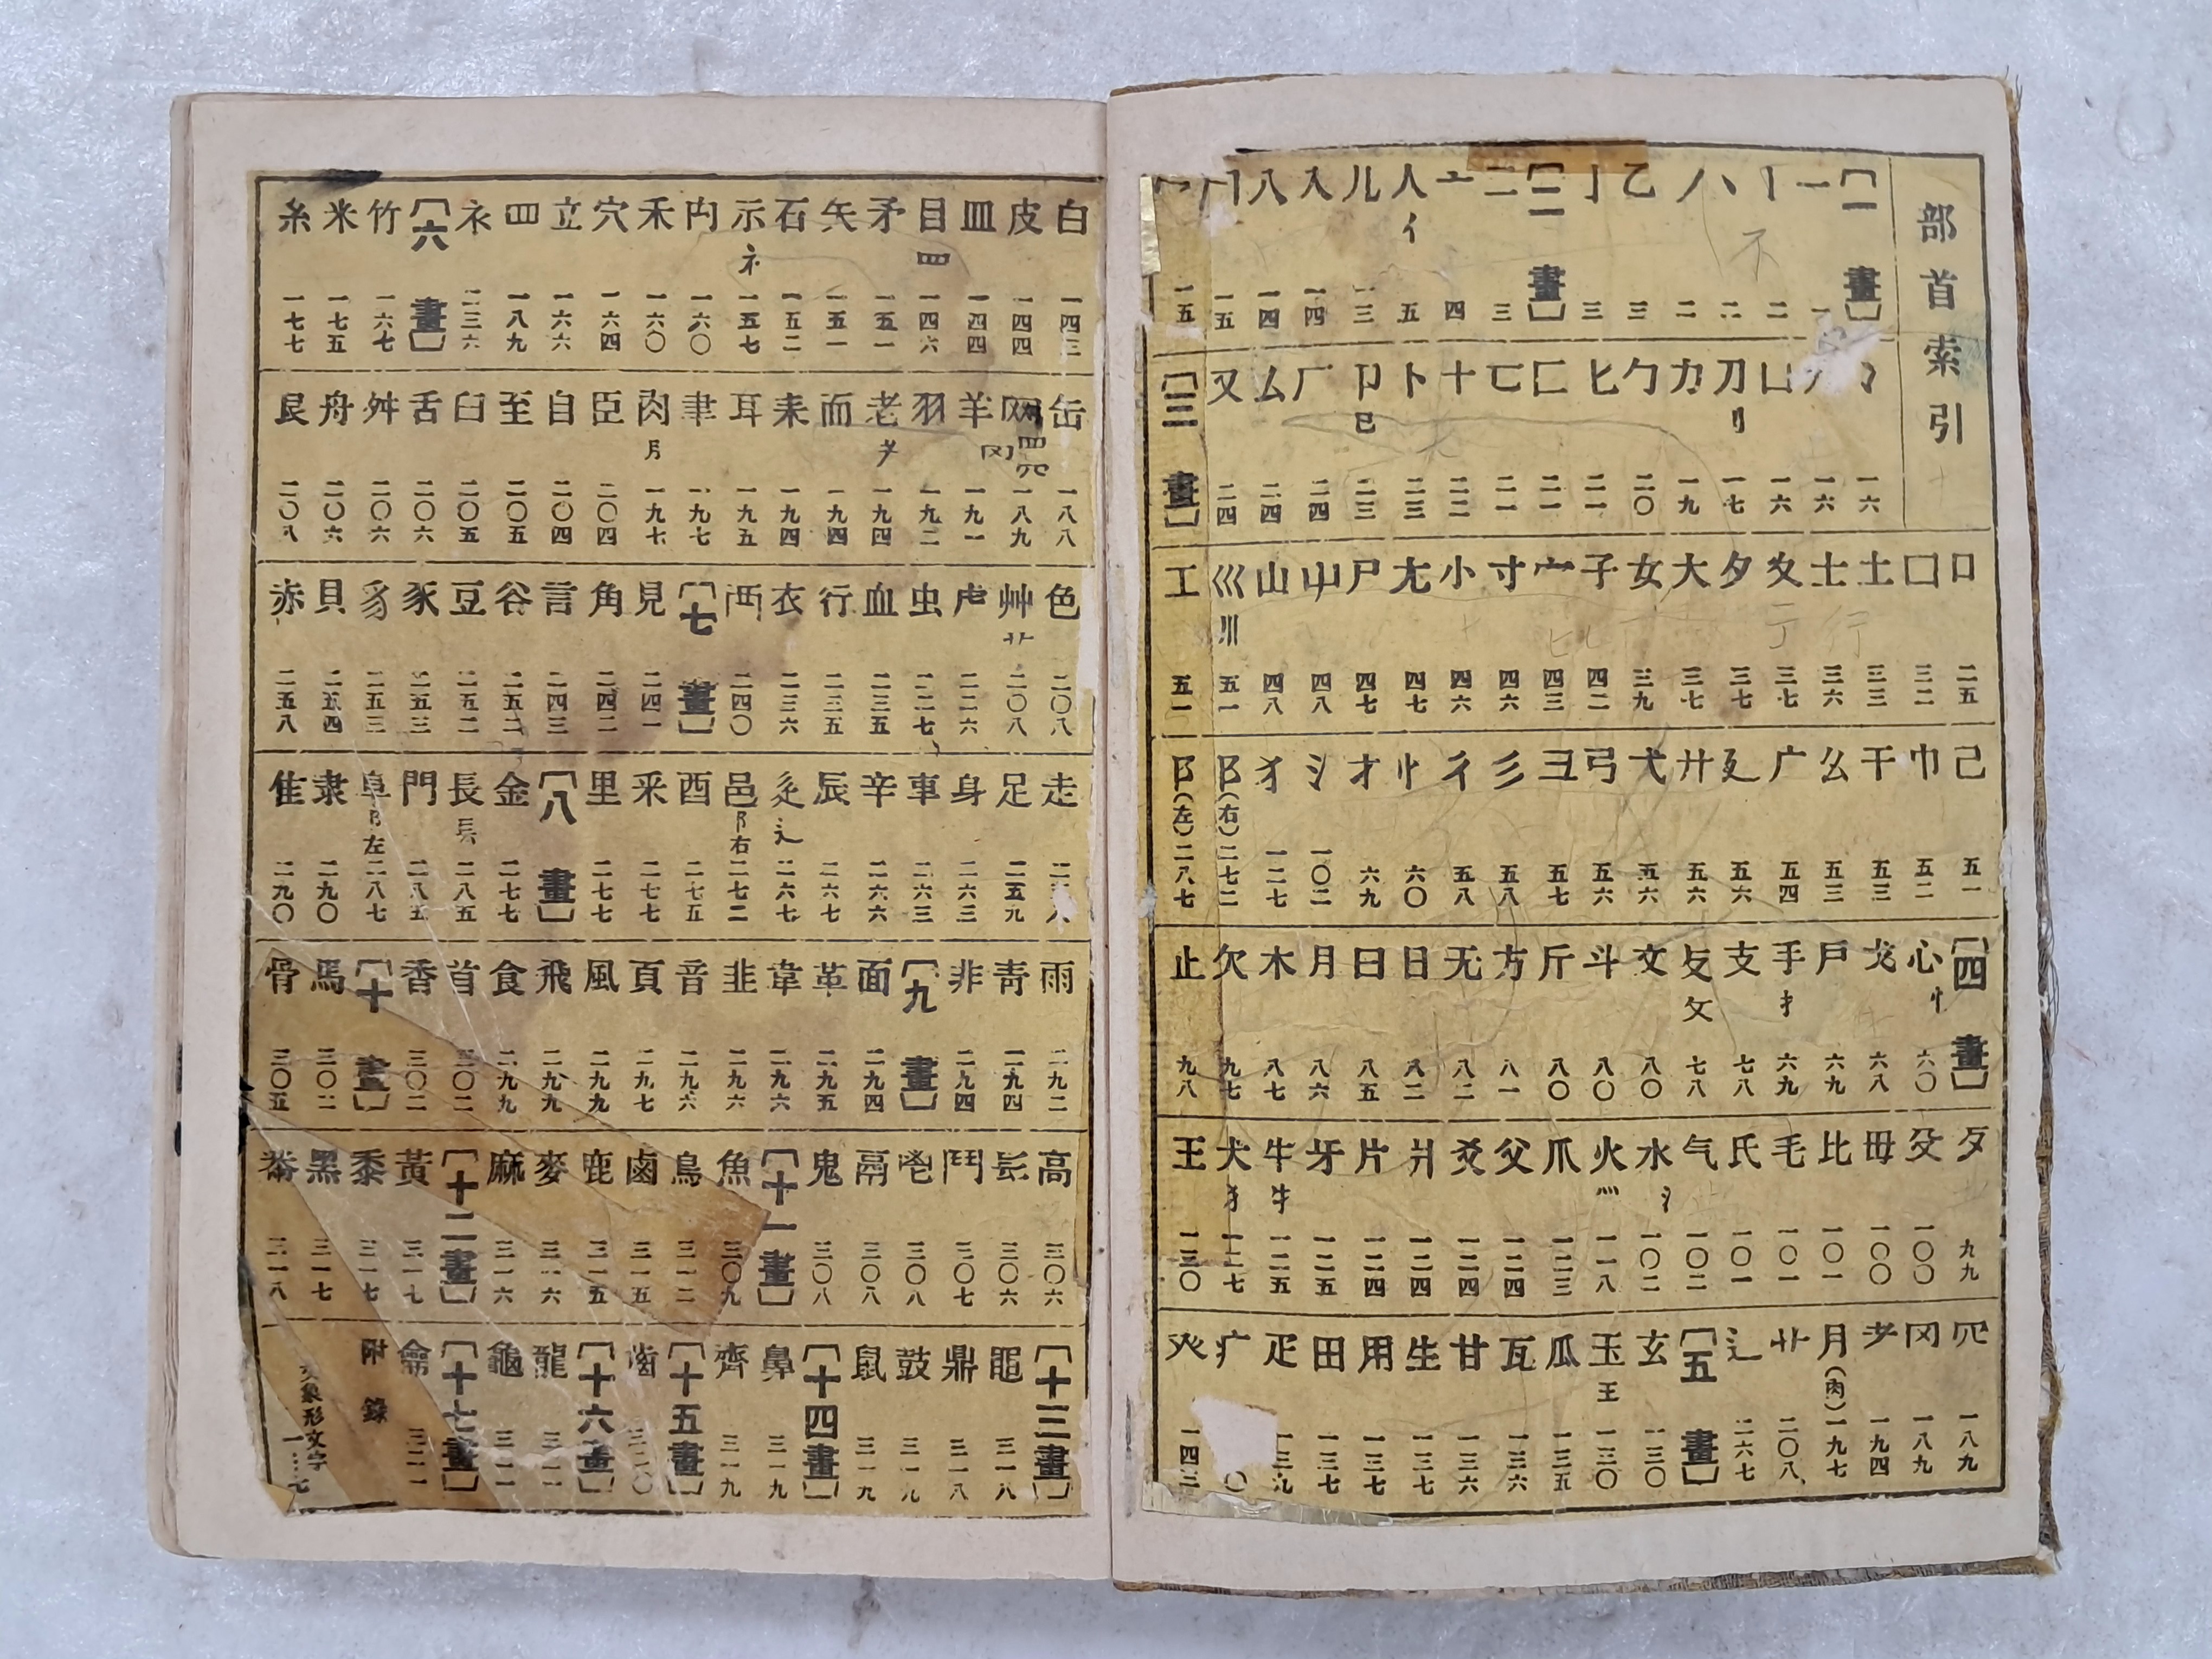 部首索引
〔一畫〕 一 一 丨 二 丶 二 丿 二 乙 三 亅 三 〔二畫〕 二 三 亠 四 人亻 五 儿 一三 入 一四 八 一四 冂 一五 冖 一五
冫 一六 几 一六 凵 一六 刀刂 一七 力 一九 勹 二〇 匕 二一 匚 二一 匸 二一 十 二二 卜 二三 卩㔾 二三 厂 二四 厶 二四 又 二四 〔三畫〕
口 二五 囗 三二 土 三三 士 三六 夂 三七 夕 三七 大 三七 女 三九 子 四二 宀 四三 寸 四六 小 四六 尢 四七 尸 四七 屮 四八 山 四八 巛川 五一 工 五一
己 五一 巾 五二 干 五三 幺 五三 广 五四 廴 五六 廾 五六 弋 五六 弓 五六 彐 五七 彡 五八 彳 五八 忄 六〇 扌 六九 氵 一〇二 犭 一二七 阝(右) 二七二 阝(左) 二八七
〔四畫〕 心忄 六〇 戈 六八 戶 六九 手扌 六九 支 七八 攴攵 七八 文 八〇 斗 八〇 斤 八〇 方 八一 无 八二 日 八二 曰 八五 月 八六 木 八七 欠 九七 止 九八
歹 九九 殳 一〇〇 毋 一〇〇 比 一〇一 毛 一〇一 氏 一〇一 气 一〇二 水氵 一〇二 火灬 一一八 爪 一二三 父 一二四 爻 一二四 爿 一二四 片 一二四 牙 一二五 牛牜 一二五 犬犭 一二七 王 一三〇
罒 一八九 冈 一八九 耂 一九四 月(肉) 一九七 艹 二〇八 辶 二六七 〔五畫〕 玄 一三〇 玉王 一三〇 瓜 一三五 瓦 一三六 甘 一三六 生 一三七 用 一三七 田 一三七 疋 一三九 疒 癶 一四三
白 一四三 皮 一四四 皿 一四四 目罒 一四六 矛 一五一 矢 一五一 石 一五二 示礻 一五七 禸 一六〇 禾 一六〇 穴 一六四 立 一六六 罒 一八九 衤 二三六 〔六畫〕 竹 一六七 米 一七五 糸 一七七
缶 一八八 网罒冈 一八九 羊 一九一 羽 一九二 老耂 一九四 而 一九四 耒 一九四 耳 一九五 聿 一九七 肉月 一九七 臣 二〇四 自 二〇四 至 二〇五 臼 二〇五 舌 二〇六 舛 二〇六 舟 二〇六 艮 二〇八
色 二〇八 艸艹 二〇八 虍 二二六 虫 二二七 血 二三五 行 二三五 衣 二三六 襾 二四〇 〔七畫〕 見 二四一 角 二四二 言 二四三 谷 二五二 豆 二五二 豕 二五三 豸 二五三 貝 二五四 赤 二五八
走 足 二五九 身 二六三 車 二六三 辛 二六六 辰 二六七 辵辶 二六七 邑阝右 二七二 酉 二七五 釆 二七七 里 二七七 〔八畫〕 金 二七七 長镸 二八五 門 二八五 阜阝左 二八七 隶 二九〇 隹 二九〇
雨 二九二 靑 二九四 非 二九四 〔九畫〕 面 二九四 革 二九五 韋 二九六 韭 二九六 音 二九六 頁 二九七 風 二九九 飛 二九九 食 二九九 首 三〇二 香 三〇二 〔十畫〕 馬 三〇二 骨 三〇五
高 三〇六 髟 三〇六 鬥 三〇七 鬯 三〇八 鬲 三〇八 鬼 三〇八 〔十一畫〕 魚 三〇九 鳥 三一二 鹵 三一五 鹿 三一五 麥 三一六 麻 三一六 〔十二畫〕 黃 三一七 黍 三一七 黑 三一七 黹 三一八
〔十三畫〕 黽 三一八 鼎 三一八 鼓 三一九 鼠 三一九 〔十四畫〕 鼻 三一九 齊 三一九 〔十五畫〕 齒 三二〇 〔十六畫〕 龍 三二一 龜 三二一 〔十七畫〕 龠 三二一 附錄 象形文字 一…七